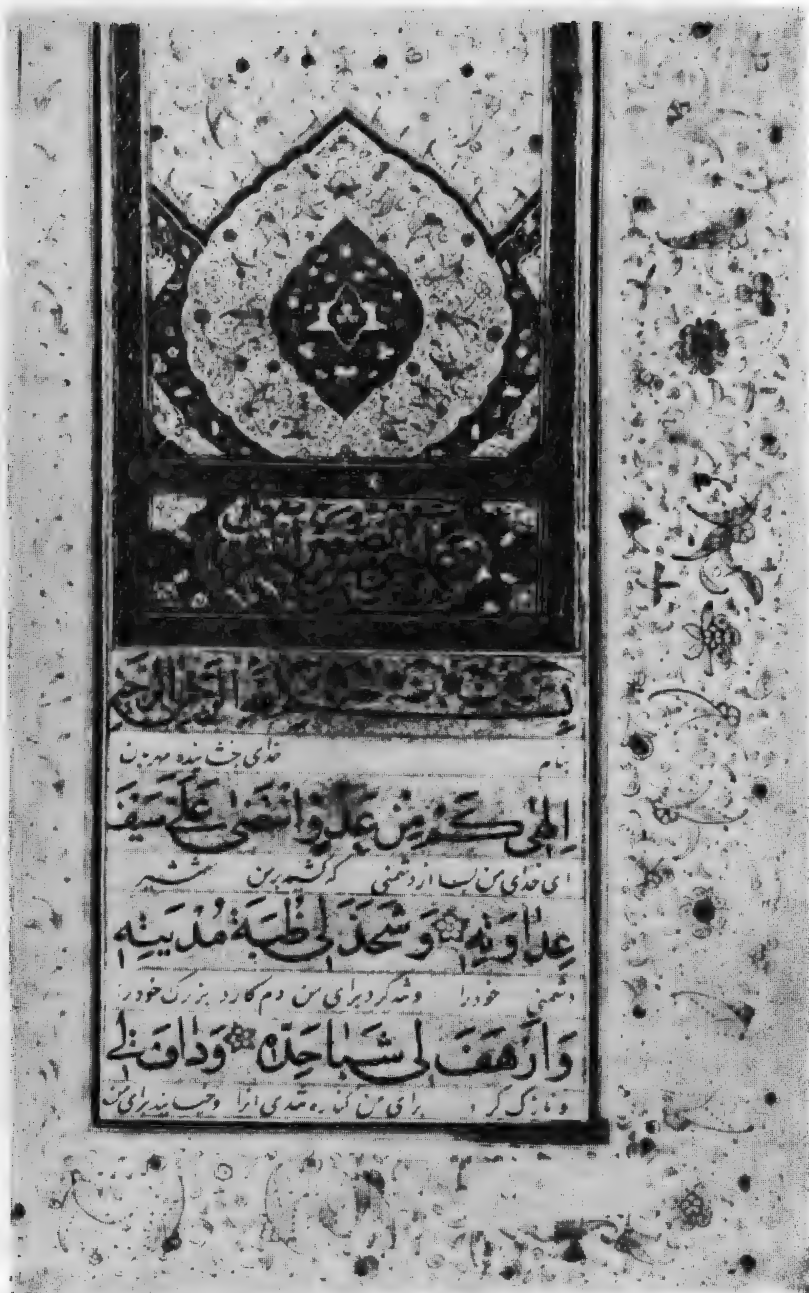 بسم الله الرحمن الرحیم
بنام خدای بخشاینده مهربان
اِلٰهی کَمْ مِنْ عَدُوٍّ انْتَضیٰ عَلَیَّ سَیْفَ
ای خدای من بسا از دشمنی که کشید بر من شمشیر
عِداوَتِهِ وَ شَحَذَ لی ظُبَةَ مُدْیَتِهِ
دشمنی خود را و تند کرد برای من دم کارد بزرک خود را
وَ اَرْهَفَ لی شَباحَدِّهِ وَ دافَ لی
و نازک کرد برای من کناره تندی آنرا و برای من